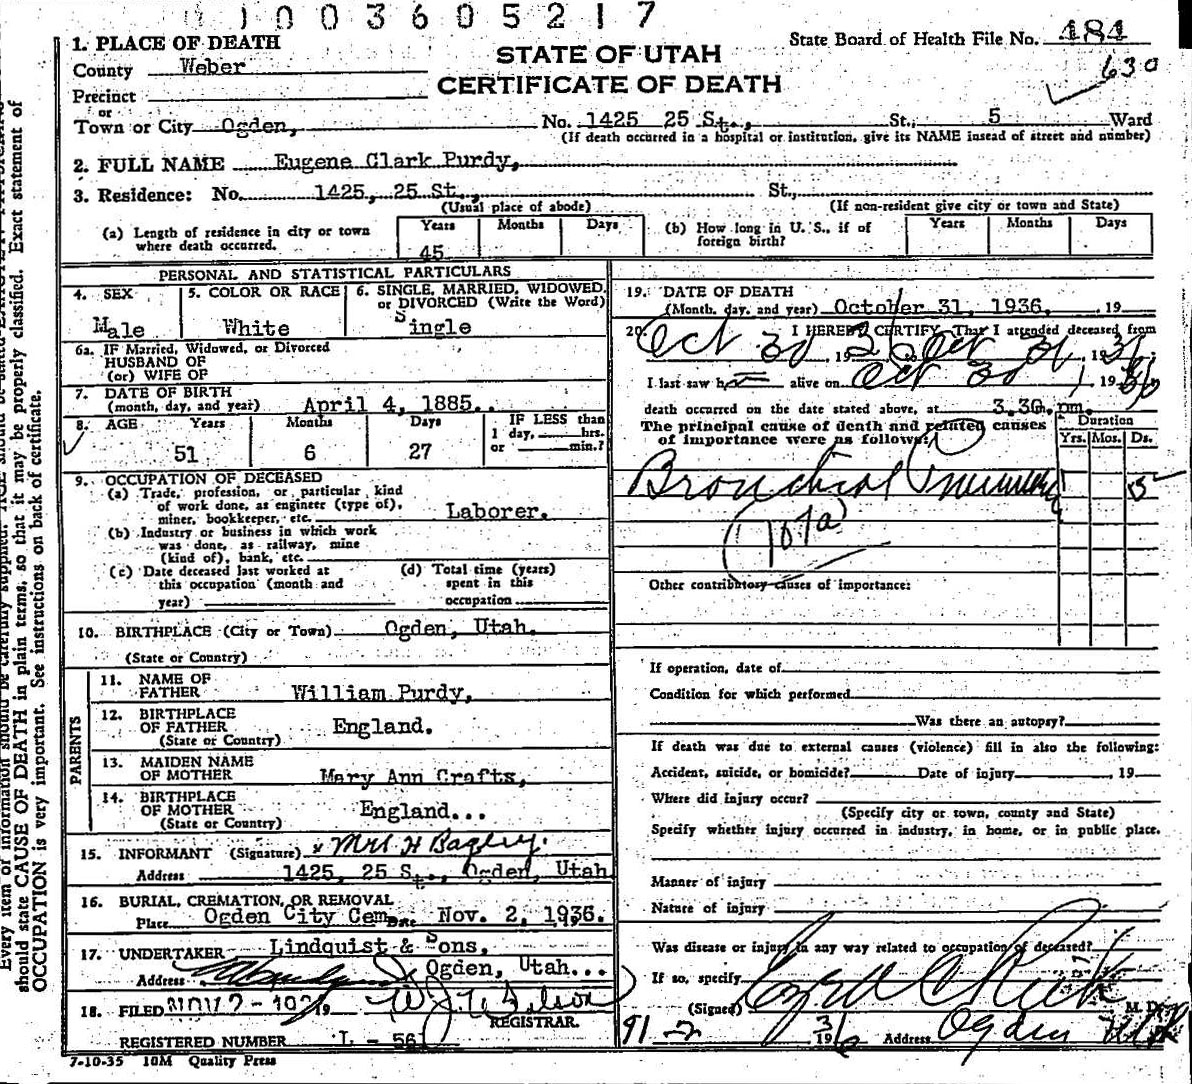 1003605217
STATE OF UTAH
CERTIFICATE OF DEATH
State Board of Health File No. 484
630
1. PLACE OF DEATH
County Weber
Precinct
or
Town or City Ogden, No. 1425 25 St., St., 5 Ward
(If death occurred in a hospital or institution, give its NAME insead of street and number)
2. FULL NAME Eugene Clark Purdy,
3. Residence: No. 1425, 25 St., St.,
(Usual place of abode) (If non-resident give city or town and State)
(a) Length of residence in city or town where death occurred. Years 45 Months Days
(b) How long in U. S., if of foreign birth? Years Months Days
PERSONAL AND STATISTICAL PARTICULARS
4. SEX Male
5. COLOR OR RACE White
6. SINGLE, MARRIED, WIDOWED, or DIVORCED (Write the Word) Single
6a. IF Married, Widowed, or Divorced
HUSBAND OF
(or) WIFE OF
7. DATE OF BIRTH
(month, day, and year) April 4, 1885.
8. AGE Years 51 Months 6 Days 27 IF LESS than 1 day, hrs. or min.?
9. OCCUPATION OF DECEASED
(a) Trade, profession, or particular kind
of work done, as engineer (type of),
miner, bookkeeper, etc. Laborer.
(b) Industry or business in which work
was done, as railway, mine
(kind of), bank, etc.
(c) Date deceased last worked at this occupation (month and year)
(d) Total time (years) spent in this occupation
10. BIRTHPLACE (City or Town) Ogden, Utah.
(State or Country)
PARENTS
11. NAME OF
FATHER William Purdy,
12. BIRTHPLACE
OF FATHER England.
(State or Country)
13. MAIDEN NAME
OF MOTHER Mary Ann Crafts,
14. BIRTHPLACE
OF MOTHER England...
(State or Country)
15. INFORMANT (Signature) x Mrs H Bagley.
Address 1425, 25 St., Ogden, Utah
16. BURIAL, CREMATION, OR REMOVAL
Place Ogden City Cem. Nov. 2, 1936.
17. UNDERTAKER Lindquist & Sons,
Address Ogden, Utah...
18. FILED NOV 2 - 19
REGISTRAR.
REGISTERED NUMBER L - 561
7-10-35 10M Quality Press
19. DATE OF DEATH
(Month, day, and year) October 31, 1936, 19
20. I HEREBY CERTIFY, That I attended deceased from
Oct 30, 1936, to Oct 31, 1936.
I last saw h alive on Oct 30, 1936
death occurred on the date stated above, at 3.30. pm.
The principal cause of death and related causes
of importance were as follows:
Duration
Yrs. Mos. Ds.
Bronchial Pneumonia 5
(107a)
Other contributory causes of importance:
If operation, date of
Condition for which performed
Was there an autopsy?
If death was due to external causes (violence) fill in also the following:
Accident, suicide, or homicide? Date of injury , 19
Where did injury occur?
(Specify city or town, county and State)
Specify whether injury occurred in industry, in home, or in public place.
Manner of injury
Nature of injury
Was disease or injury in any way related to occupation of deceased?
If so, specify
(Signed) M. D.
1936 Address Ogden Utah
should state CAUSE OF DEATH in plain terms, so that it may be properly classified. Exact statement of
OCCUPATION is very important. See instructions on back of certificate.